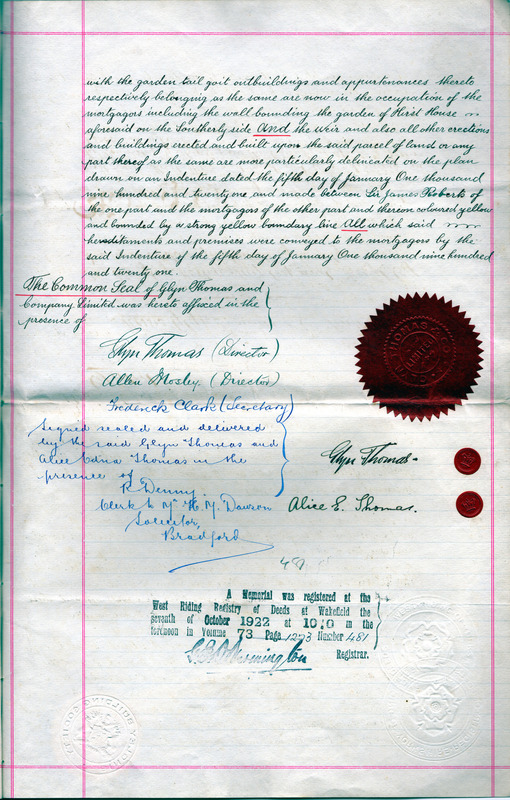 with the garden tail goit outbuildings and appurtenances thereto
respectively belonging as the same are now in the occupation of the
mortgagors including the wall bounding the garden of Hirst House
aforesaid on the Southerly side And the weir and also all other erections
and buildings erected and built upon the said parcel of land or any
part thereof as the same are more particularly delineated on the plan
drawn on an Indenture dated the fifth day of January One thousand
nine hundred and twenty one and made between Sir James Roberts of
the one part and the mortgagors of the other part and thereon coloured yellow
and bounded by a strong yellow boundary line All which said
hereditaments and premises were conveyed to the mortgagors by the
said Indenture of the fifth day of January One thousand nine hundred
and twenty one.
The Common Seal of Glyn Thomas and
Company Limited was hereto affixed in the
presence of
Glyn Thomas (Director)
Allen Mosley. (Director)
Frederick Clark (Secretary)
Signed sealed and delivered
by the said Glyn Thomas and
Alice Edna Thomas in the
presence of
R Denny
Clerk to Mr H. M. Dawson
Solicitor,
Bradford
Glyn Thomas
Alice E. Thomas.
481
A Memorial was registered at the
West Riding Registry of Deeds at Wakefield the
seventh of October 1922 at 10.0 in the
forenoon in Volume 73 Page 1223 Number 481
Registrar.